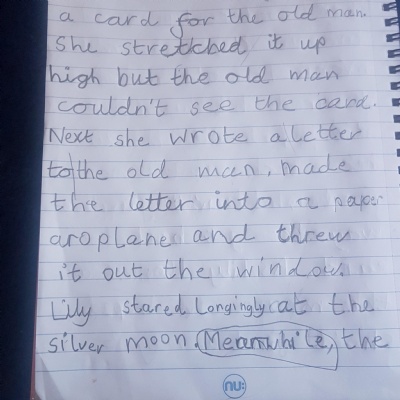 a card for the old man.
She stretched it up
high but the old man
couldn't see the card.
Next she wrote a letter
to the old man, made
the letter into a paper
aroplane and threw
it out the window.
Lily stared longingly at the
silver moon. Meanwhile, the
nu: